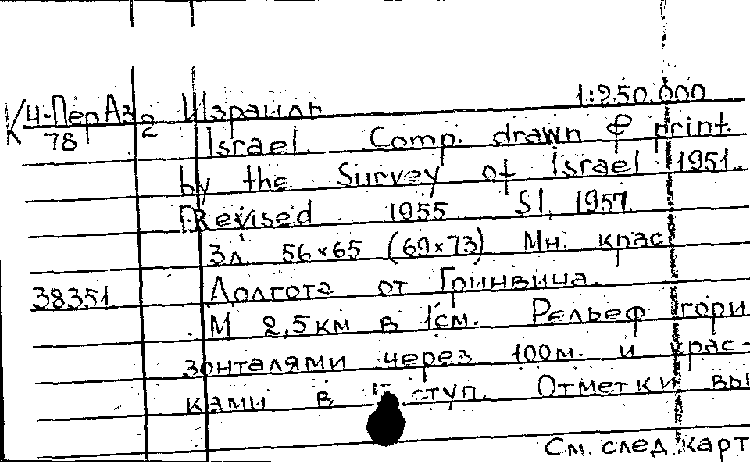 К4-ПерАз 2 Израиль 1:250.000
78 Israel. Comp. drawn & print.
by the Survey of Israel 1951.
Revised 1955 Sl, 1957.
3л. 56×65 (60×73) Мн. крас.
38351 Долгота от Гринвича.
М 2,5км в 1см. Рельеф гори-
зонталями через 100м. и крас-
ками в ступ. Отметки вы
См. след. карт